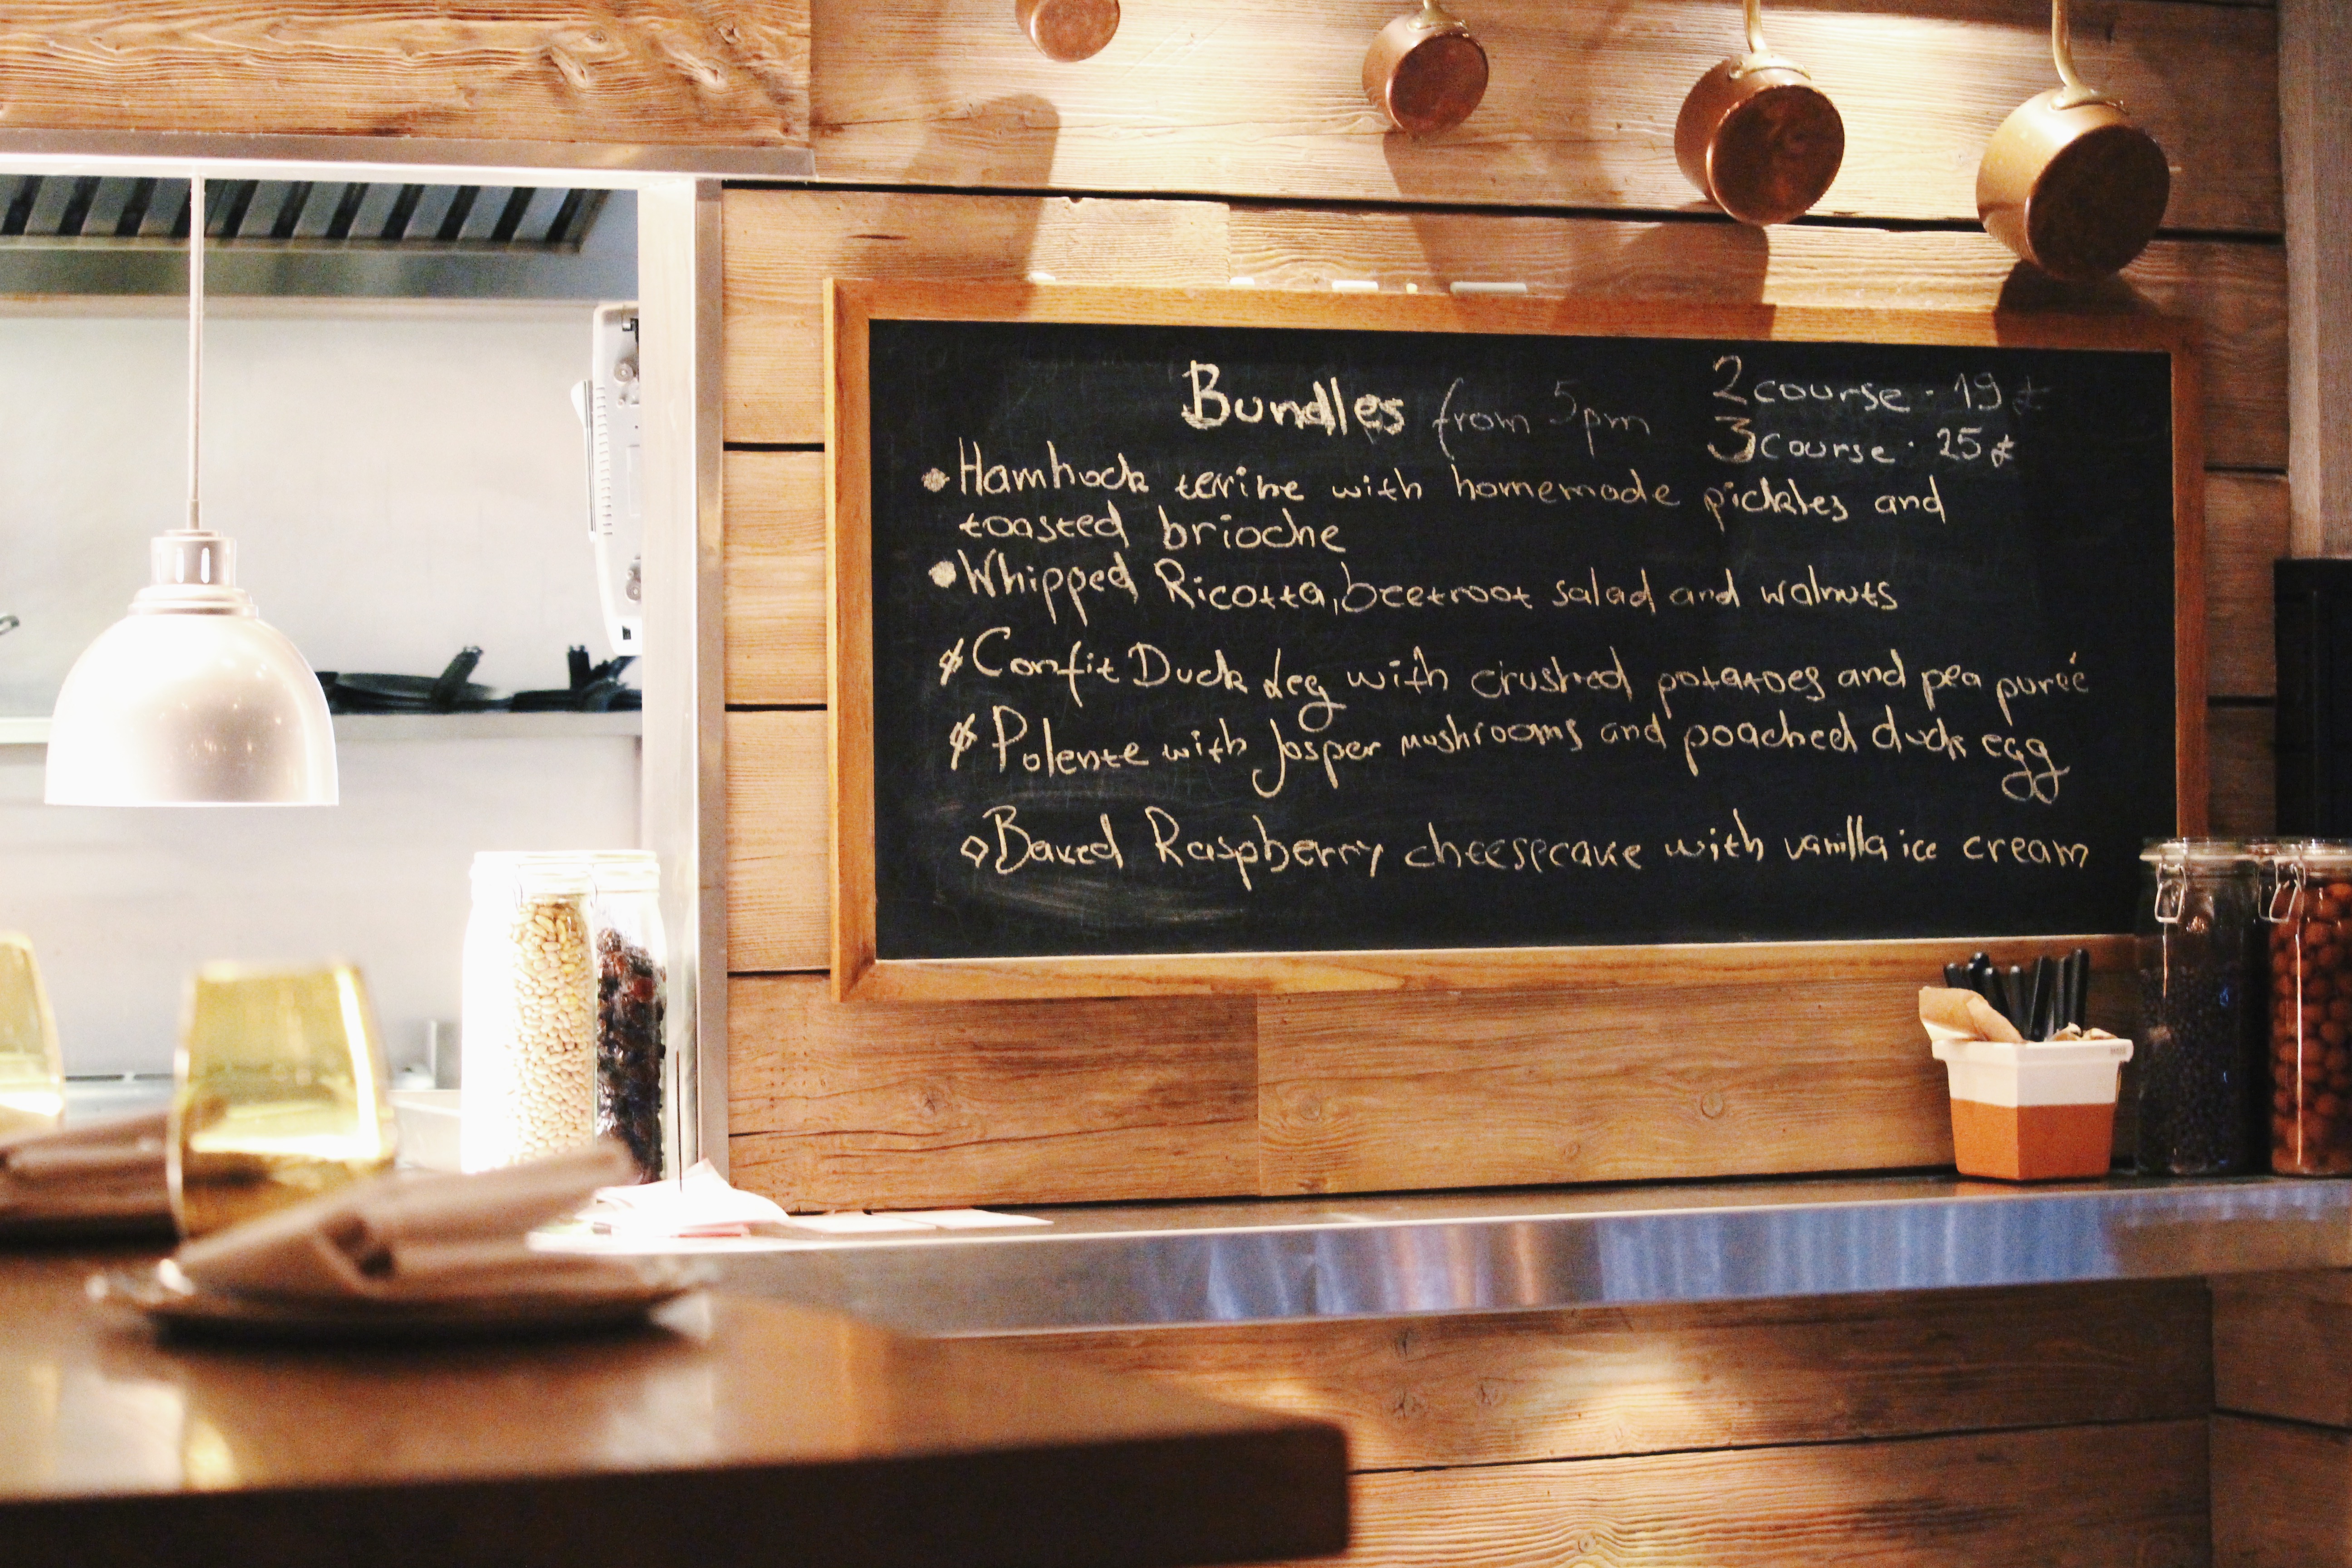 Bundles from 5pm
2 course · 19 £
3 course · 25 £
• Hamhock terine with homemade pickles and
toasted brioche
• Whipped Ricotta, beetroot salad and walnuts
Confit Duck Leg with crushed potatoes and pea pureé
Polente with Josper mushrooms and poached duck egg
◇ Baked Raspberry cheesecake with vanilla ice cream